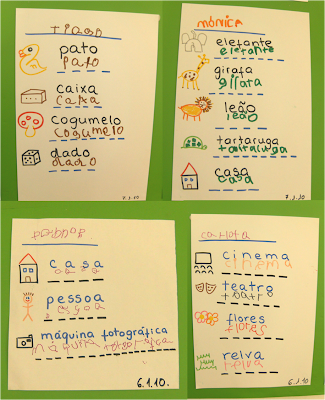 TIAGO
pato
pato
caixa
caixa
cogumelo
cogumelo
dado
dado
MÓNICA
elefante
elefante
girafa
girara
leão
leão
tartaruga
tartaruga
casa
casa
7.1.10
casa
casa
pessoa
essoa
máquina fotográfica
máquina fotográfica
6.1.10.
carlota
cinema
cinema
teatro
teatro
flores
flores
relva
relva
6.1.10.